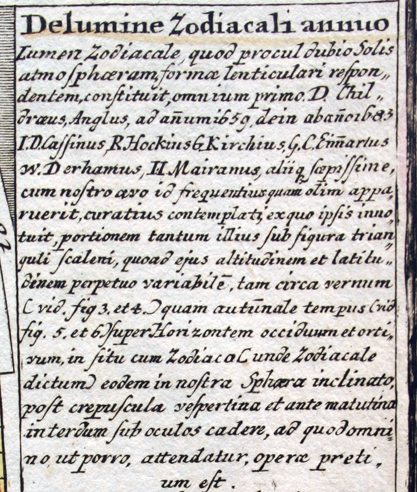 De lumine Zodiacali annuo
Lumen Zodiacale, quod procul dubio Solis
atmosphæram, formæ lenticulari respon„
dentem, constituit, omnium primo. D. Chil„
dræus, Anglus, ad añum 1659. dein ab año 1683
I.D. Cassinus, R. Hockius G. Kirchius, G.C. Em̃artus
W. Derhamus, H. Mairanus, aliiq sæpissime,
cum nostro ævo id frequentius quam olim appa„
ruerit, curatius contemplati, ex quo ipsis inno„
tuit, portionem tantum illius sub figura trian„
guli scaleni, quoad ejus altitudinem et latitu„
dinem perpetuo variabilẽ, tam circa vernum
(vid. fig 3. et 4.) quam autũnale tempus (vid
fig. 5. et 6) super Horizontem occiduum et orti„
vum, in situ cum Zodiaco (unde Zodiacale
dictum) eodem in nostra Sphæra inclinato,
post crepuscula vespertina et ante matutina
interdum sub oculos cadere, ad quod omni„
no ut porro, attendatur, operæ preti„
um est.